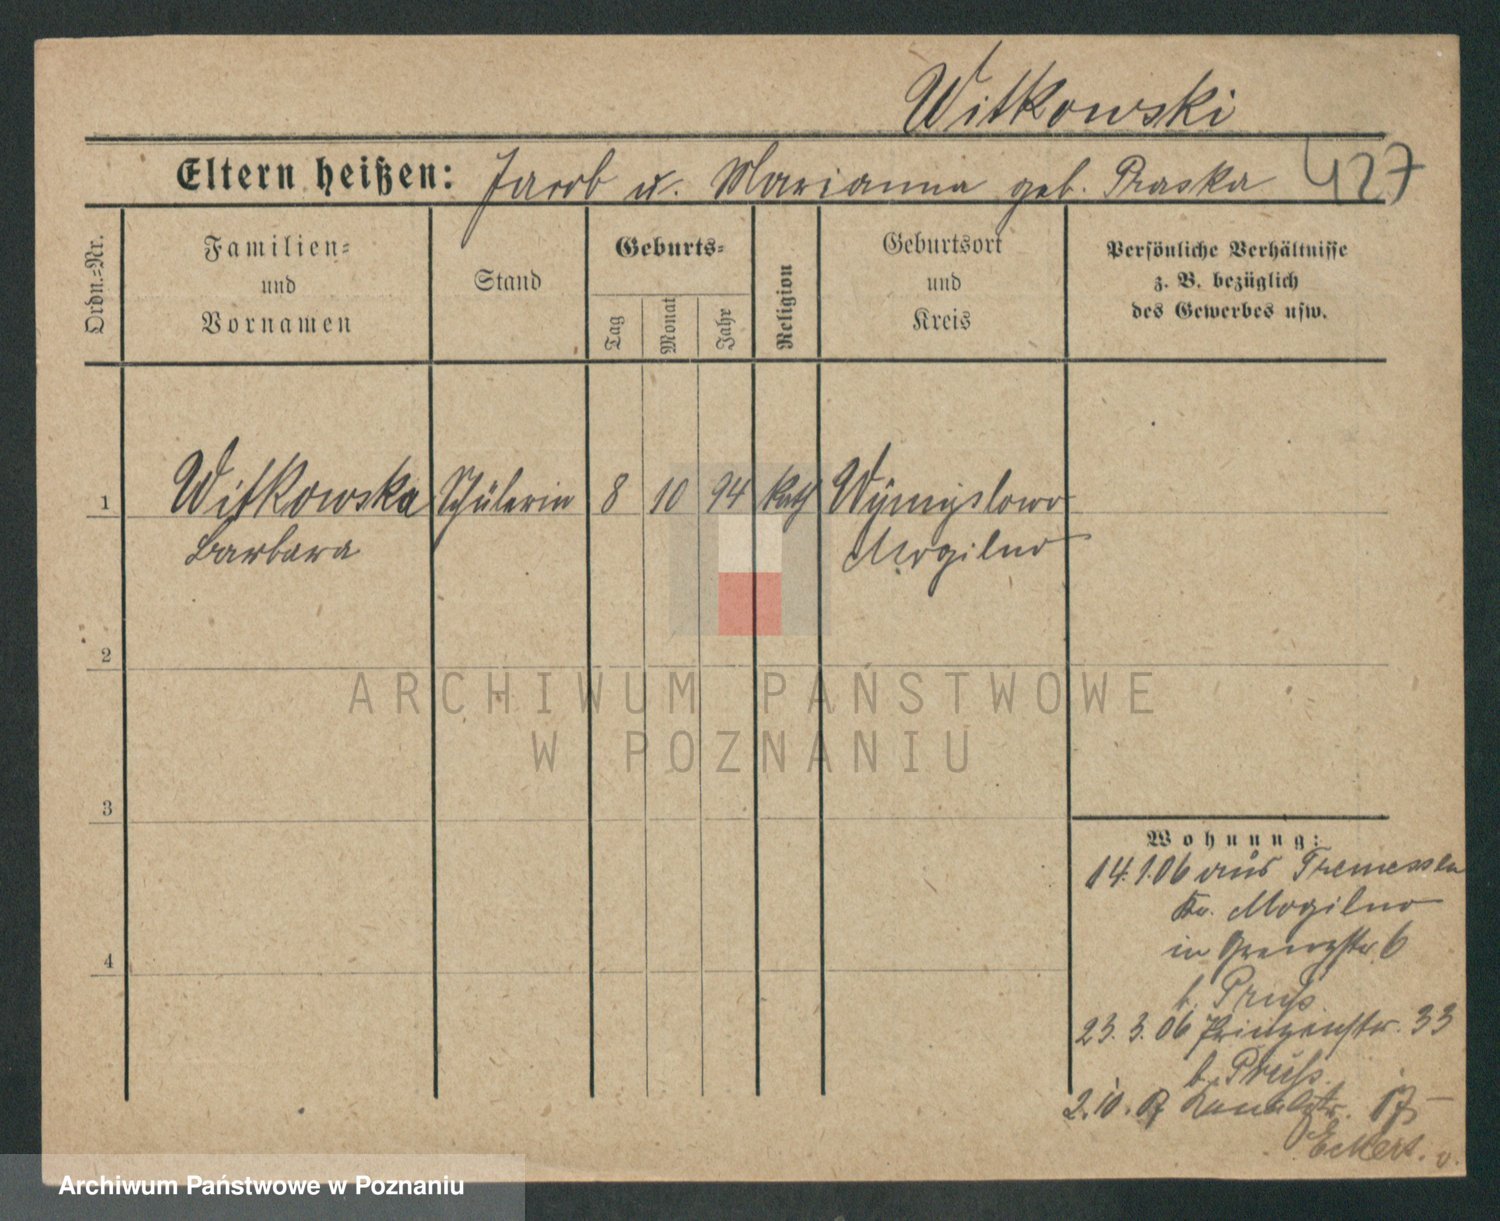 Witkowski
Eltern heißen: Jacob u. Marianna geb. Praska 427
Ordn.=Nr.
Familien=
und
Vornamen
Stand
Geburts=
Tag
Monat
Jahr
Religion
Geburtsort
und
Kreis
Persönliche Verhältnisse
z. B. bezüglich
des Gewerbes usw.
1 Witkowska Schülerin 8 10 94 kath Wymyslowo
Barbara Mogilno
2
3
4
Wohnung:
14.1.06 aus Tremessen
Kr. Mogilno
in Grenzstr. 6
b. Pruss
23.3.06 Prinzenstr. 33
b. Pruss.
2.10.07 Kanalstr. 17
Eckert.
ARCHIWUM PAŃSTWOWE
W POZNANIU
Archiwum Państwowe w Poznaniu